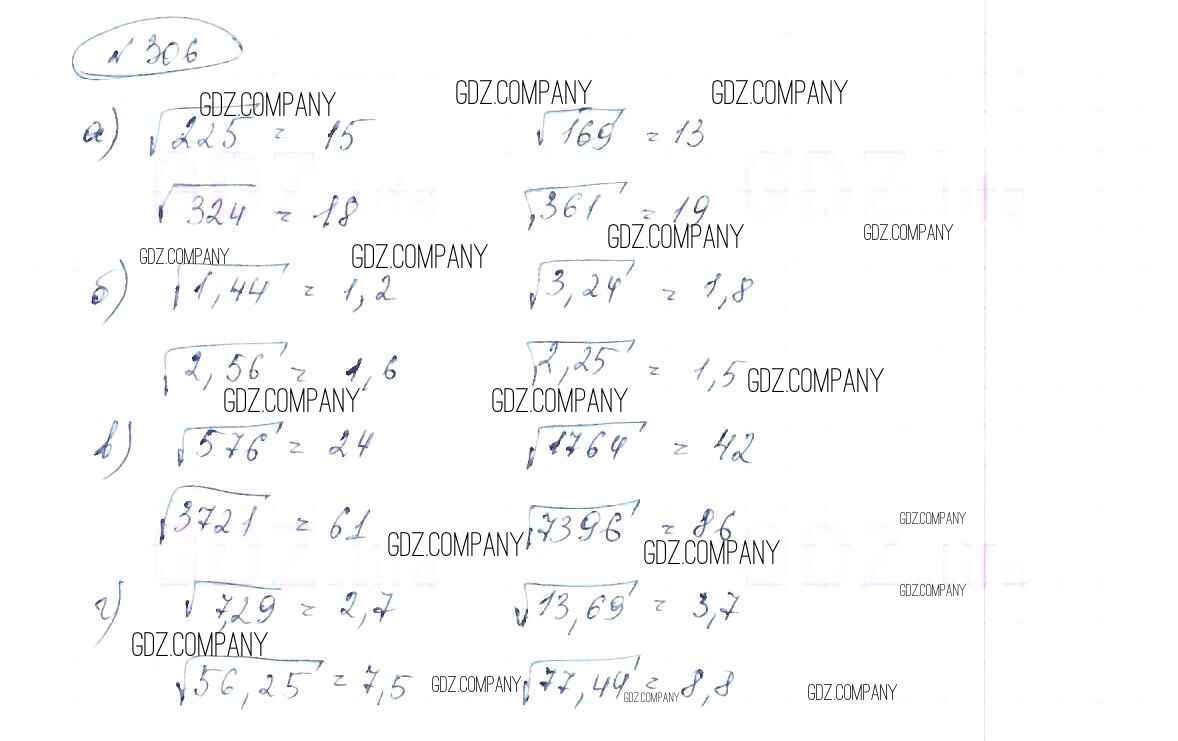 № 306
GDZ.COMPANY GDZ.COMPANY GDZ.COMPANY
а) √225 = 15 √169 = 13
√324 = 18 √361 = 19
GDZ.COMPANY GDZ.COMPANY GDZ.COMPANY GDZ.COMPANY
б) √1,44 = 1,2 √3,24 = 1,8
√2,56 = 1,6 √2,25 = 1,5 GDZ.COMPANY
GDZ.COMPANY GDZ.COMPANY
в) √576 = 24 √1764 = 42
√3721 = 61 √7396 = 86 GDZ.COMPANY
GDZ.COMPANY GDZ.COMPANY
г) √7,29 = 2,7 √13,69 = 3,7 GDZ.COMPANY
GDZ.COMPANY
√56,25 = 7,5 GDZ.COMPANY √77,44 = 8,8 GDZ.COMPANY GDZ.COMPANY